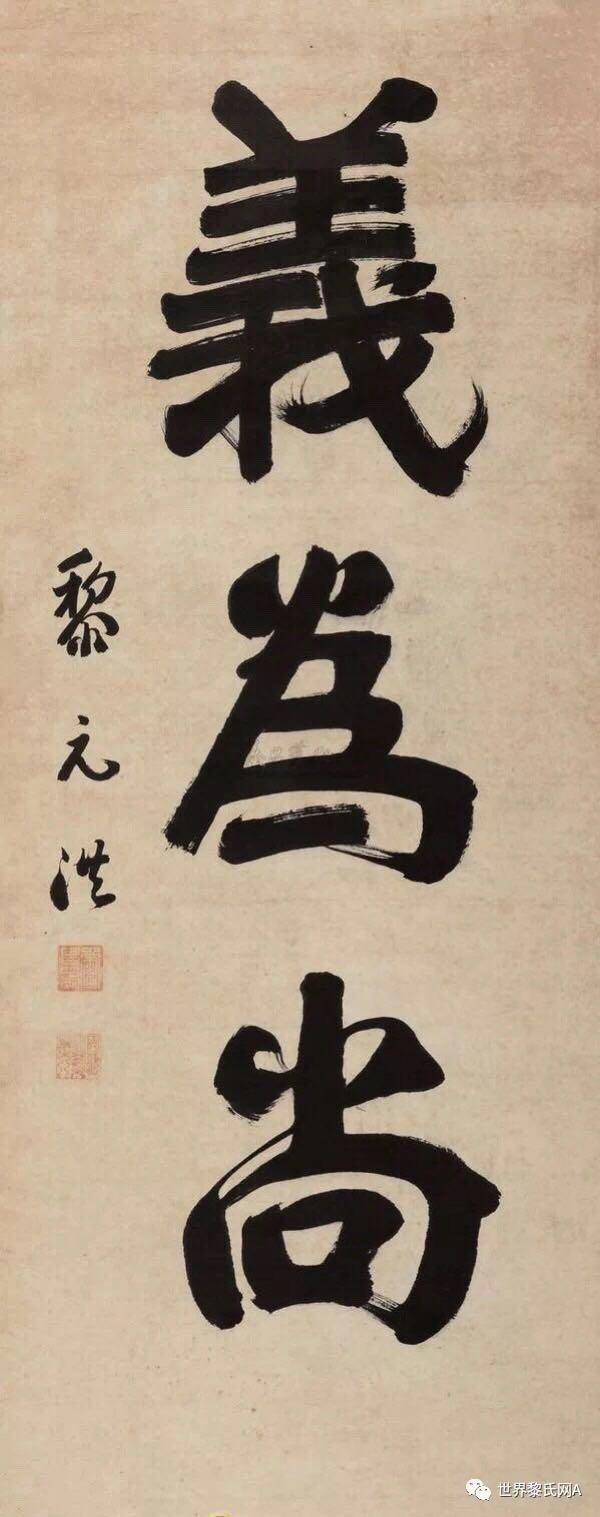 義為尚
黎元洪
世界黎氏网A